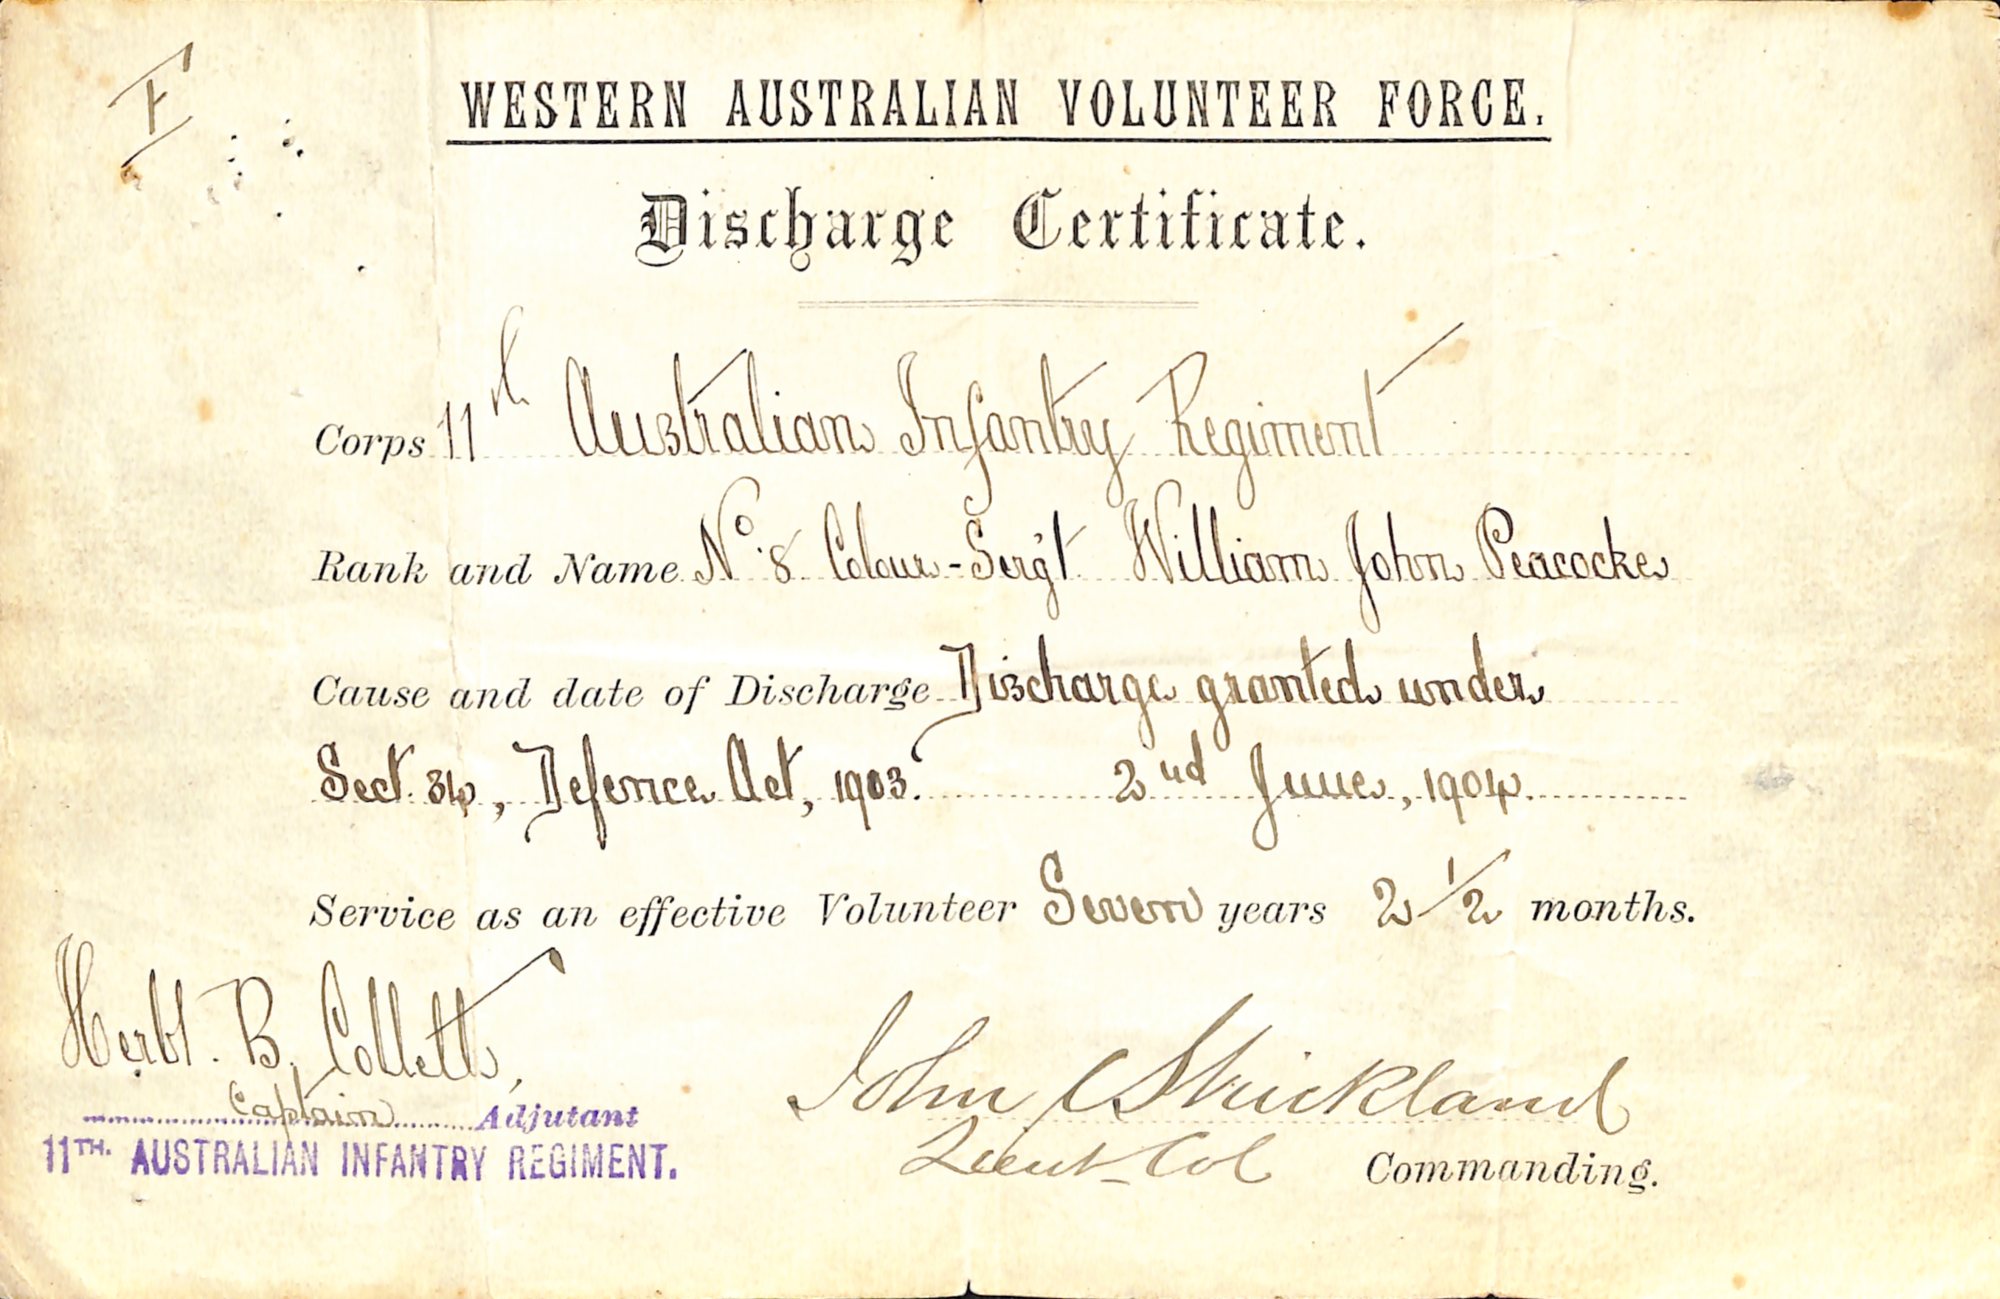 F
WESTERN AUSTRALIAN VOLUNTEER FORCE.
Discharge Certificate.
Corps 11th Australian Infantry Regiment
Rank and Name No. 8 Colour-Serg't William John Peacocke
Cause and date of Discharge Discharge granted under
Sect. 34, Defence Act, 1903. 2nd June, 1904.
Service as an effective Volunteer Seven years 2 1/2 months.
Herbt. B. Collett,
Captain Adjutant
11TH. AUSTRALIAN INFANTRY REGIMENT.
John C Strickland
Lieut-Col Commanding.